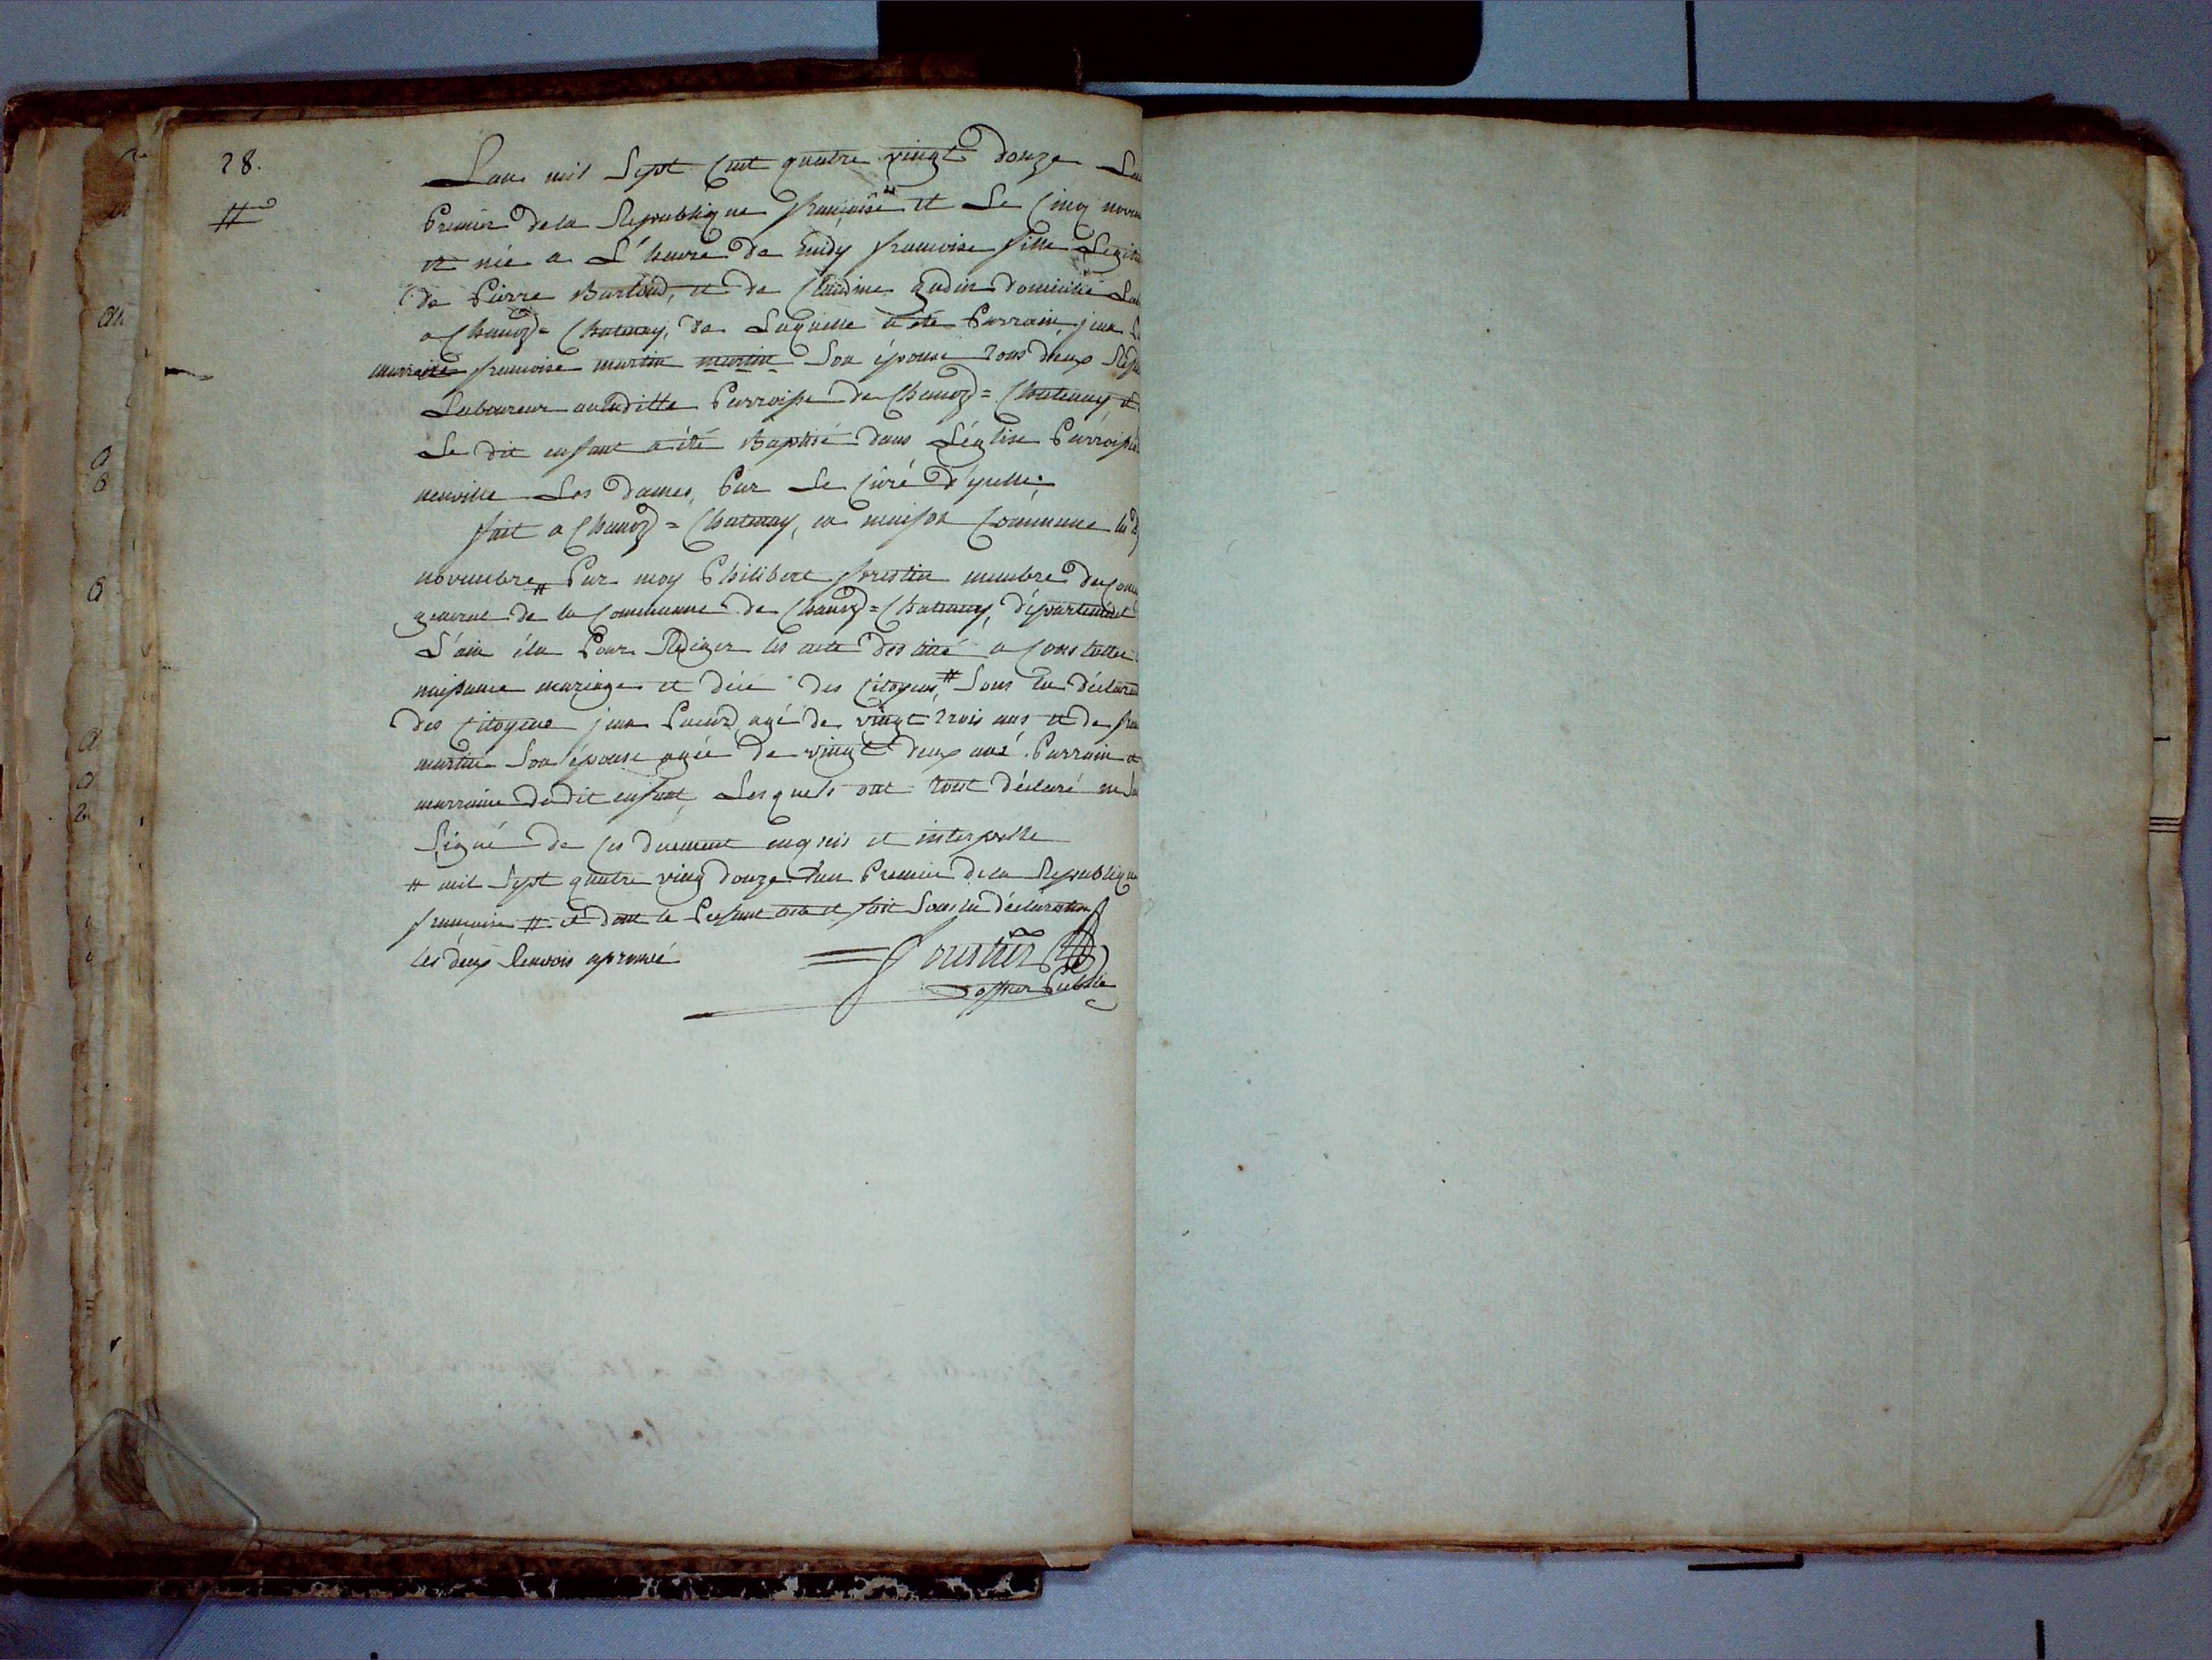 28.
Lan mil Sept Cent quatre vingt douze
Premier de la Republique françoise et Le Cinq
et née a L'heure de midy francoise fille
de Pierre Burtoud, et de Claudine gudin domicilié
a Chanoz = Chatenay, de Laquelle a été Parrain, jean
marraine francoise martin martin Son épouse tous deux
Laboureur auditte Parroisse de Chanoz = Chatenay, et
Le dit enfant a été Baptisé dans L'église
neuville Les dames, Par Le Curé d'ycelle,
fait a Chanoz = Chatenay, en maison Commune
novembre # Par moy Philibert forestier membre du
general de la Commune de Chanoz = Chatenay, département
L'ain élu Pour Rediger les acte destiné a Constatter
naissance mariage et décé des Citoyens, # Sous la
des Citoyens jean agé de vingt trois ans et de
martin Son épouse agée de vingt deux ans Parrain et
marraine du dit enfant, Lesquels ont tout déclaré ne
Signé de Ces duement enquis et interpellé
# mil Sept quatre ving douze Lan Premier de la Republique
françoise # et dont le Present acte et fait Sous la déclaration
les deux Renvois aprouvé
Forestier
officier Public